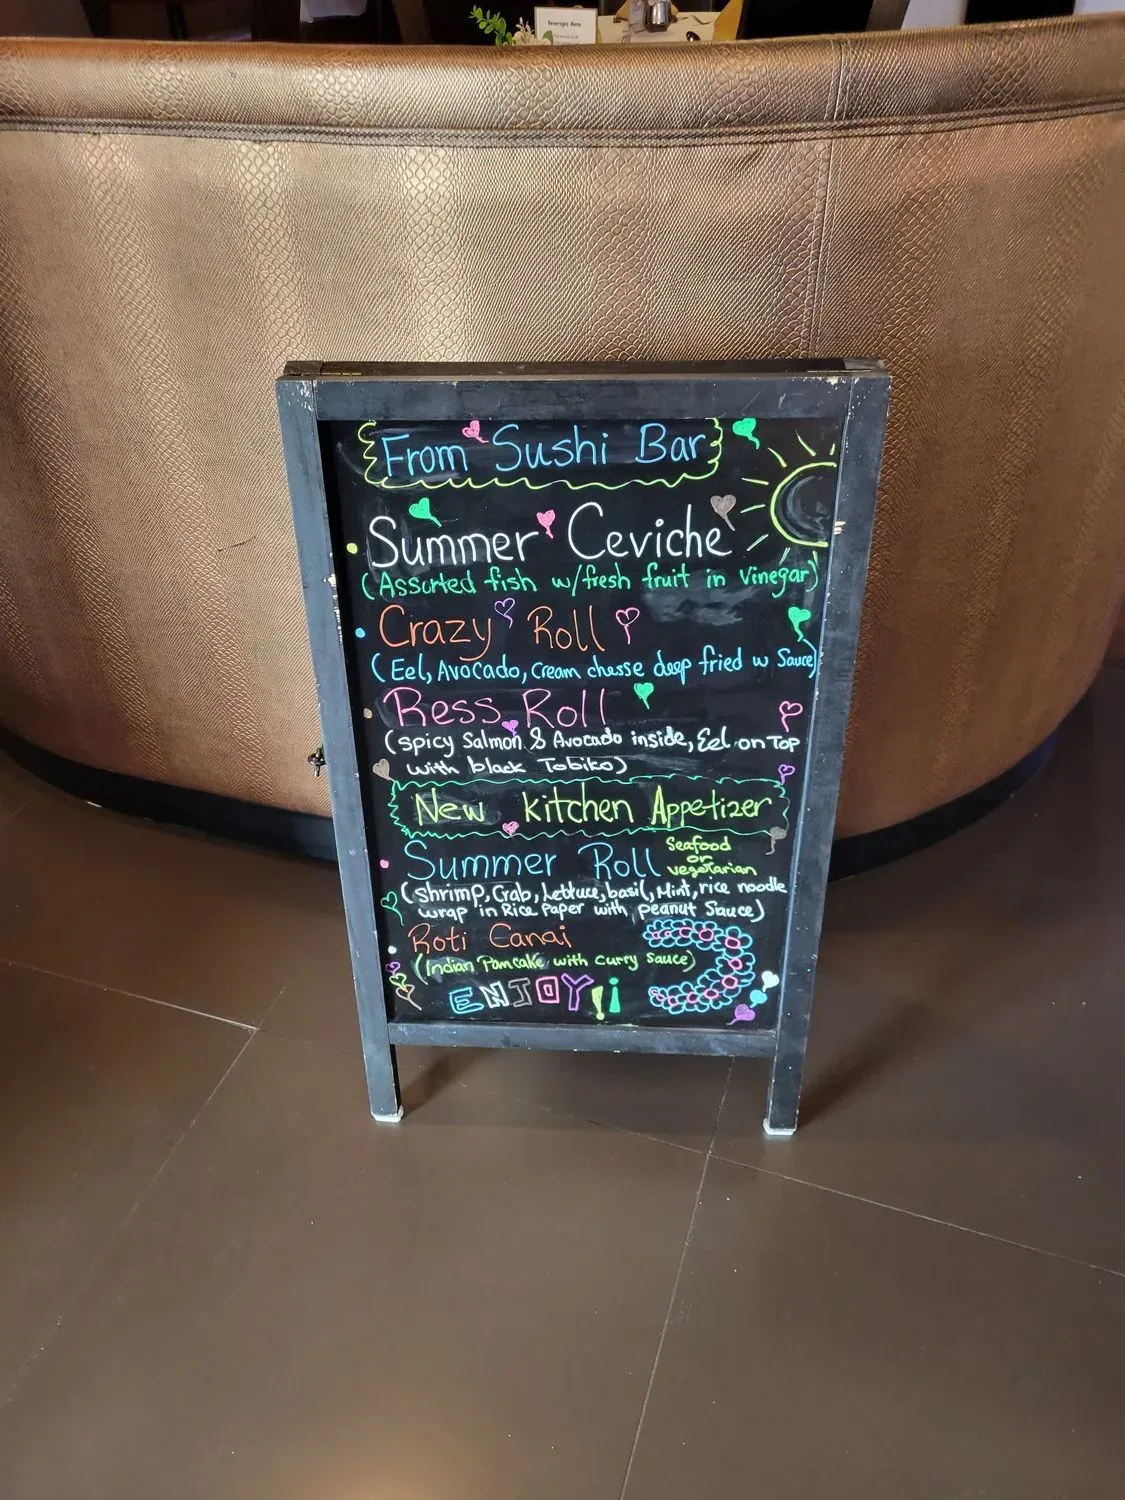 Beverages Menu
From Sushi Bar
Summer Ceviche
(Assorted fish w/fresh fruit in vinegar)
Crazy Roll
(Eel, Avocado, cream chesse deep fried w Sauce)
Ress Roll
(spicy Salmon & Avocado inside, Eel on Top
with black Tobiko)
New kitchen Appetizer
Summer Roll
Seafood
or
vegetarian
(shrimp, Crab, Lettuce, basil, Mint, rice noodle
wrap in Rice Paper with peanut Sauce)
Roti Canai
(Indian Pamcake with curry sauce)
ENJOY!!